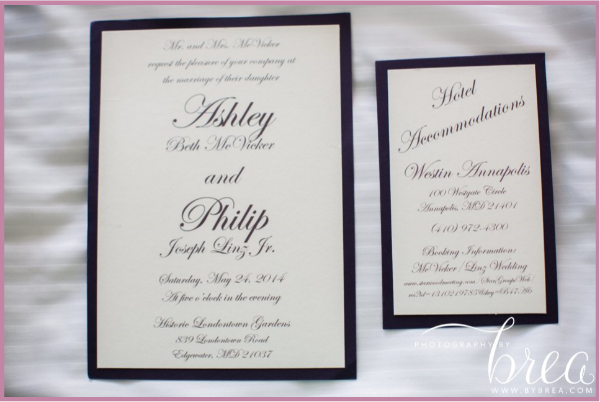 Mr. and Mrs. McVicker
request the pleasure of your company at
the marriage of their daughter
Ashley
Beth McVicker
and
Philip
Joseph Linz Jr.
Saturday, May 24, 2014
At five o'clock in the evening
Historic Londontown Gardens
839 Londontown Road
Edgewater, MD 21037
Hotel
Accommodations
Westin Annapolis
100 Westgate Circle
Annapolis, MD 21401
(410) 972-4300
Booking Information:
McVicker / Linz Wedding
PHOTOGRAPHY BY
brea
WWW.BYBREA.COM